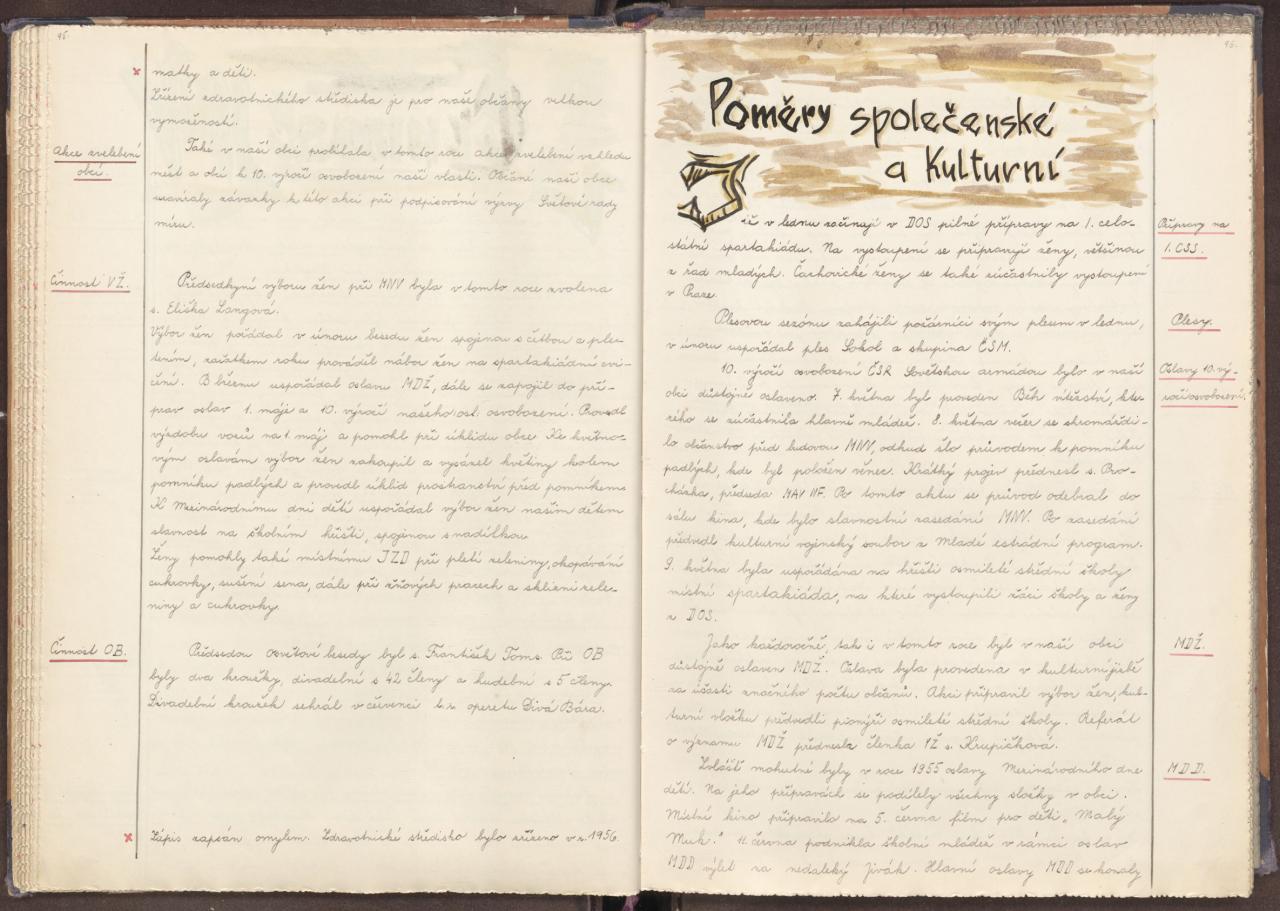 95.
× matky a děti.
Zřízení zdravotnického střediska je pro naše občany velkou
vymožeností.
Akce zvelebení
obcí.
Také v naší obci probíhala v tomto roce akce zvelebení vzhledu
měst a obcí k 10. výročí osvobození naší vlasti. Občané naší obce
uzavíraly závazky k této akci při podpisování výzvy Světové rady
míru.
Činnost VŽ.
Předsedkyní výboru žen při MNV byla v tomto roce zvolena
s. Eliška Langová.
Výbor žen pořádal v únoru besedu žen spojenou s četbou a ple-
tením, začátkem roku prováděl nábor žen na spartakiádní cvi-
čení. V březnu uspořádal oslavu MDŽ, dále se zapojil do pří-
prav oslav 1. máje a 10. výročí našeho osvobození. Provedl
výzdobu vozů na 1. máj a pomohl při úklidu obce. Ke květno-
vým oslavám výbor žen zakoupil a vysázel květiny kolem
pomníku padlých a provedl úklid prostranství před pomníkem.
K Mezinárodnímu dni dětí uspořádal výbor žen našim dětem
slavnost na školním hřišti, spojenou s nadílkou.
Ženy pomohly také místnímu JZD při pletí zeleniny, okopávání
cukrovky, sušení sena, dále při žňových pracech a sklizni zele-
niny a cukrovky.
Činnost OB.
Předsedou osvětové besedy byl s. František Toms. Při OB
byly dva kroužky, divadelní s 42 členy a hudební s 5 členy.
Divadelní kroužek sehrál v červenci t.r. operetu Divá Bára.
× Zápis zapsán omylem. Zdravotnické středisko bylo zřízeno v r. 1956.
96.
Poměry společenské
a Kulturní
Již v lednu začínají v DOS pilné přípravy na 1. celo-
státní spartakiádu. Na vystoupení se připravují ženy, většinou
z řad mladých. Čachovické ženy se také zúčastnily vystoupení
v Praze.
Přípravy na
1. CSS.
Plesovou sezónu zahájili požárníci svým plesem v lednu,
v únoru uspořádal ples Sokol a skupina ČSM.
Plesy.
10. výročí osvobození ČSR Sovětskou armádou bylo v naší
obci důstojně oslaveno. 7. května byl proveden Běh vítězství, kte-
rého se zúčastnila hlavně mládež. 8. května večer se shromáždi-
lo občanstvo před budovou MNV, odkud šlo průvodem k pomníku
padlých, kde byl položen věnec. Krátký projev přednesl s. Pro-
cházka, předseda MAV NF. Po tomto aktu se průvod odebral do
sálu kina, kde bylo slavnostní zasedání MNV. Po zasedání
předvedl kulturní vojinský soubor z Mladé estrádní program.
9. května byla uspořádána na hřišti osmileté střední školy
místní spartakiáda, na které vystoupili žáci školy a ženy
z DOS.
Oslavy 10. vý-
ročí osvobození.
Jako každoročně, tak i v tomto roce byl v naší obci
důstojně oslaven MDŽ. Oslava byla provedena v kulturní jizbě
za účasti značného počtu občanů. Akci připravil výbor žen, kul-
turní vložku předvedli pionýři osmileté střední školy. Referát
o významu MDŽ přednesla členka VŽ s. Krupičková.
MDŽ.
Zvlášť mohutné byly v roce 1955 oslavy Mezinárodního dne
dětí. Na jeho přípravách se podílely všechny složky v obci.
Místní kino připravilo na 5. června film pro děti „Malý
Muk.“ 11. června podnikla školní mládež v rámci oslav
MDD výlet na nedaleký Jivák. Hlavní oslavy MDD se konaly
MDD.